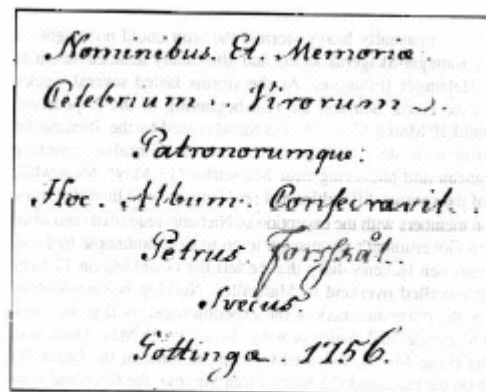 Nominibus Et Memoriæ
Celebrium Virorum
Patronorumque:
Hoc Album Consecravit.
Petrus Forsskål.
Gottingæ 1756.